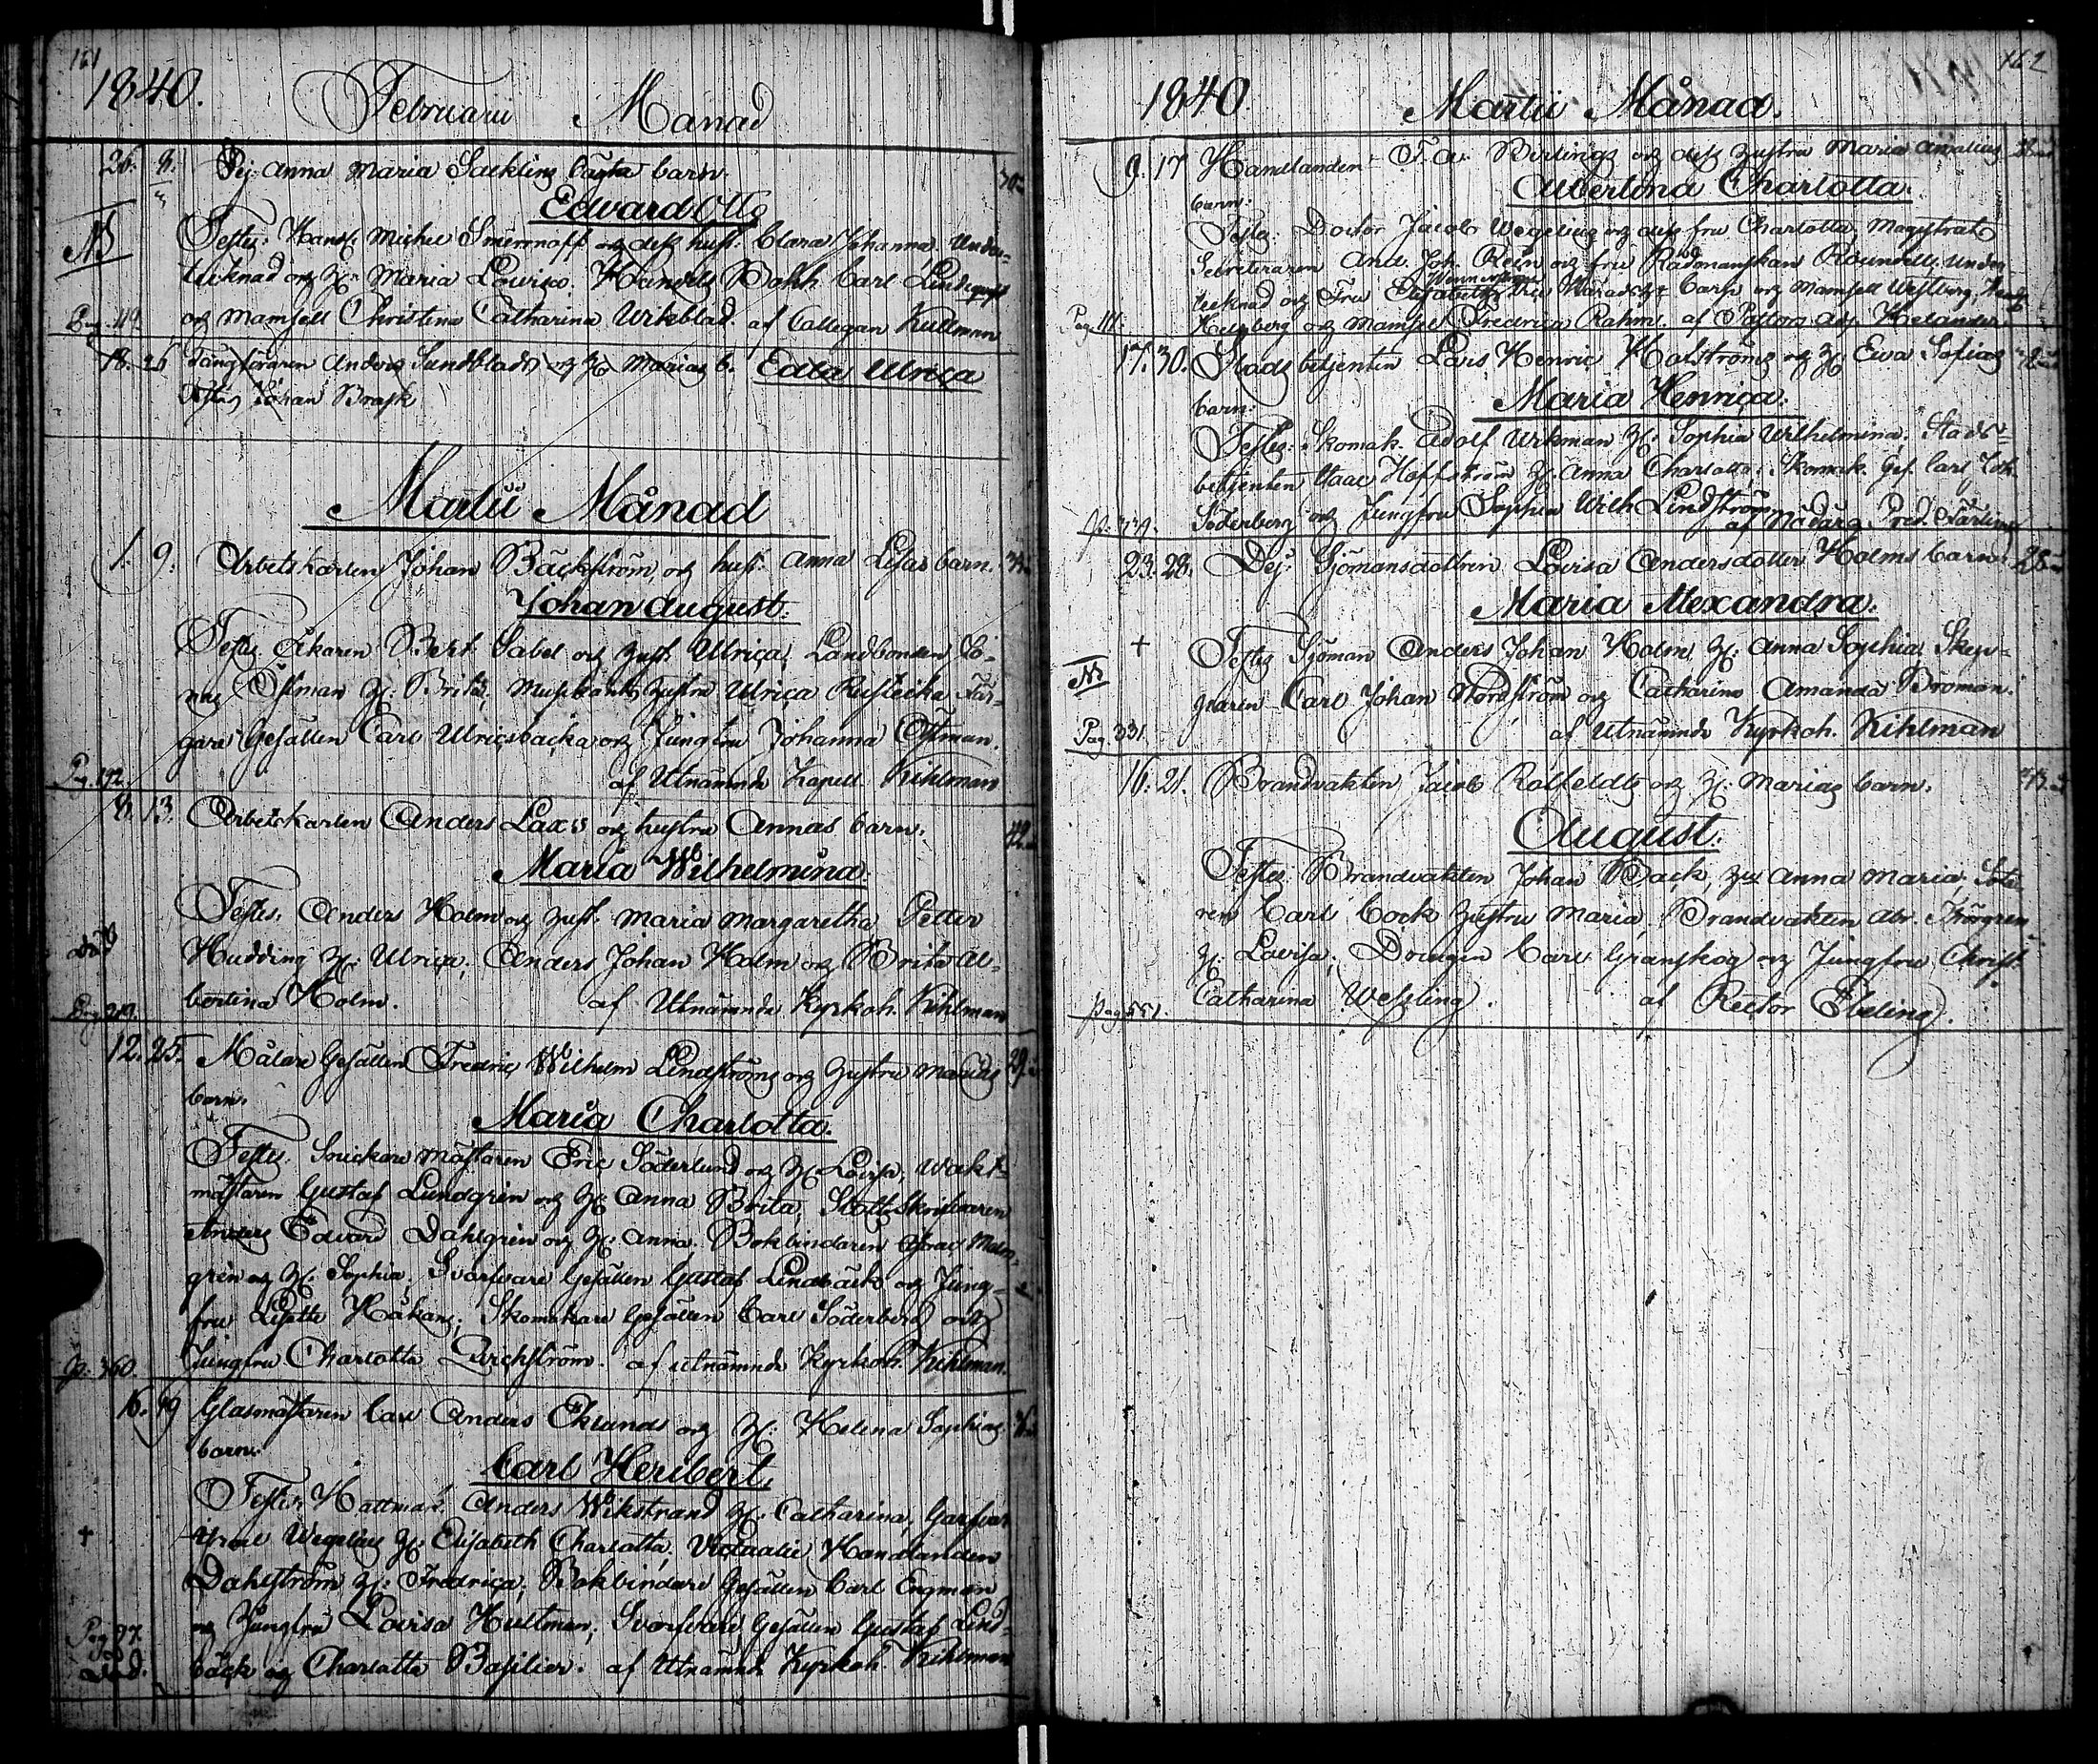 161
1840. Februarii Månad
26. 8. Pig: Anna Maria Saeklins oägta barn. 30
Edward Otto
NB Testes: Handl: Michel Smirnoff och dess hust: Clara Johanna, Under-
tecknad och H: Maria Lovisa. Handels Bokh Carl Lindeqvist
Pag. 119 och Mamsell Christina Catharina Urkblad. af Collegan Kullman
18. 26 Fångföraren Anders Sundblads och H: Marias b. Edla Ulrica
Testes Johan Brask
Martii Månad
1. 9. Arbetskarlen Johan Bäckström, och hust: Anna Lisas barn.
Johan August.
Testes Åkaren Bert. Sabel och hust. Ulrica, Landbonden
Östman H: Brita, Musikants hustru Ulrica
gare Gesällen Carl Ulricsbacka och Jungfru Johanna Östman.
Pag. 192. af Utnämnde Kapell. Kihlman
8. 13. Arbetskarlen Anders Laxes och hustru Annas barn. 42
Maria Wilhelmina.
Testes: Anders Holm och hust. Maria Margaretha Petter
död Hudding H: Ulrica, Anders Johan Holm och Brita Al-
bertina Holm. af Utnämnde Kyrkoh. Kihlman
Pag. 219.
12. 25. Målare Gesällen Fredric Wilhelm Lindströms och hustru Marias 29
barn.
Maria Charlotta.
Testes. Snickare mästaren Eric Söderlund och H: Lovisa, Wakt-
mästaren Gustaf Lundgren och H: Anna Brita, Slotts Skrifvaren
Anders Edvard Dahlgren och H: Anna. Bokbindaren Israel Malm-
gren och H: Sophia. Svarfvare Gesällen Gustaf Lindbäck och Jung-
fru Lisette Håkans, Skomakare Gesällen Carl Söderberg och
p. 360. Jungfru Charlotta Lurckström. af utnämnde Kyrkoh. Kihlman.
16. 19 Glasmästaren Carl Anders Eklunds och H: Helena Sophias
barn.
Carl Heribert.
Testes: Hattmak. Anders Wikstrand H: Catharina, Garfvar
+ Israel Wegelius H: Elisabeth Charlotta, Victualie Handlanden
Dahlström H: Fredrica, Bokbindare Gesällen Carl Engman
Pag 97. och Jungfru Lovisa Hultman, Svarfvare Gesällen Gustaf Lind-
död. bäck och Charlotta Basilier. af Utnämnde Kyrkoh. Kihlman
162
1840 Martii Månad.
9. 17 Handlanden F. A. Rerlings och dess hustru Maria Amalias
barn. Albertina Charlotta.
Testes: Doctor Jacob Wegelius och dess fru Charlotta, Magistrats
Secreteraren And. Joh. Rein och fru Rådmanskan Roundell, under
tecknad och Fru Elisabeth, och Mamsell Westberg,
Pag. 111. Helsberg och Mamsell Fredrica Rahm. af Pastors Adj. Helander.
17. 30. Stads betjenten Lars Henric Holströms och H: Ewa Sofias
barn.
Maria Henrica.
Testes: Skomak. Adolf Urkman H: Sophia Wilhelmina. Stads-
betjenten Isaac Hoffström H: Anna Charlotta, Skomak. Ges. Carl Joh.
Söderberg och Jungfru Sophia Wilh Lindström
af Nådårs Pred. Färling
23. 28. Dej: Sjömansdottren Lovisa Andersdotter Holms barn. 26
Maria Alexandra.
+ Testes Sjöman Anders Johan Holm, H: Anna Sophia, Skep-
NB paren Carl Johan Nordström och Catharina Amanda Broman.
Pag. 331 af Utnämnde Kyrkoh. Kihlman
16. 21. Brandvakten Jacob Rolfeldts och H: Marias barn.
August.
Testes. Brandvakten Johan Back, H: Anna Maria,
ren Carl Cock hustru Maria, Brandvakten Abr.
H: Lovisa, Drengen Carl Granskog och Jungfru Christ.
Catharina Wessling. af Rector Ebeling.
pag 551.